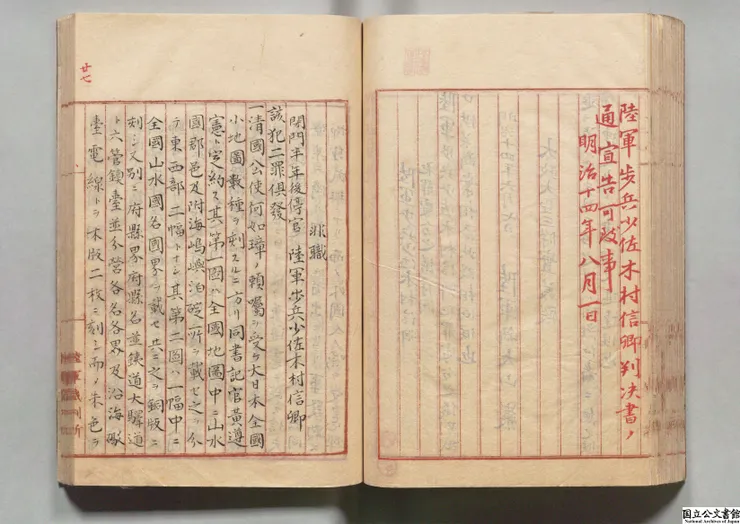 陸軍歩兵少佐木村信卿判決書ノ
通宣告可致事
明治十四年八月一日
廿七
非職
閉門半年後停官 陸軍歩兵少佐木村信卿
該犯二罪倶發
一清國公使何如璋ノ頼嘱ヲ受ケ大日本全國
小地圖數種ヲ刻スルニ方リ同書記官黄遵
憲ト定約ス其第一圖ハ全國地圖中ニ山水
國郡邑及附海嶋嶼泊碇ノ所ヲ載セ之ヲ分
チ東西部二幅トナシ其第二圖ハ一幅中ニ
全國山水國名國界ヲ載セ共ニ之ヲ銅版ニ
刻シ又別ニ府縣界府縣名並鉄道大驛道
ト六管鎮臺並分營各名各界及沿海砲
臺電線トヲ木版二枚ニ刻シ而ノ朱色ヲ
陸軍裁判所
国立公文書館
National Archives of Japan